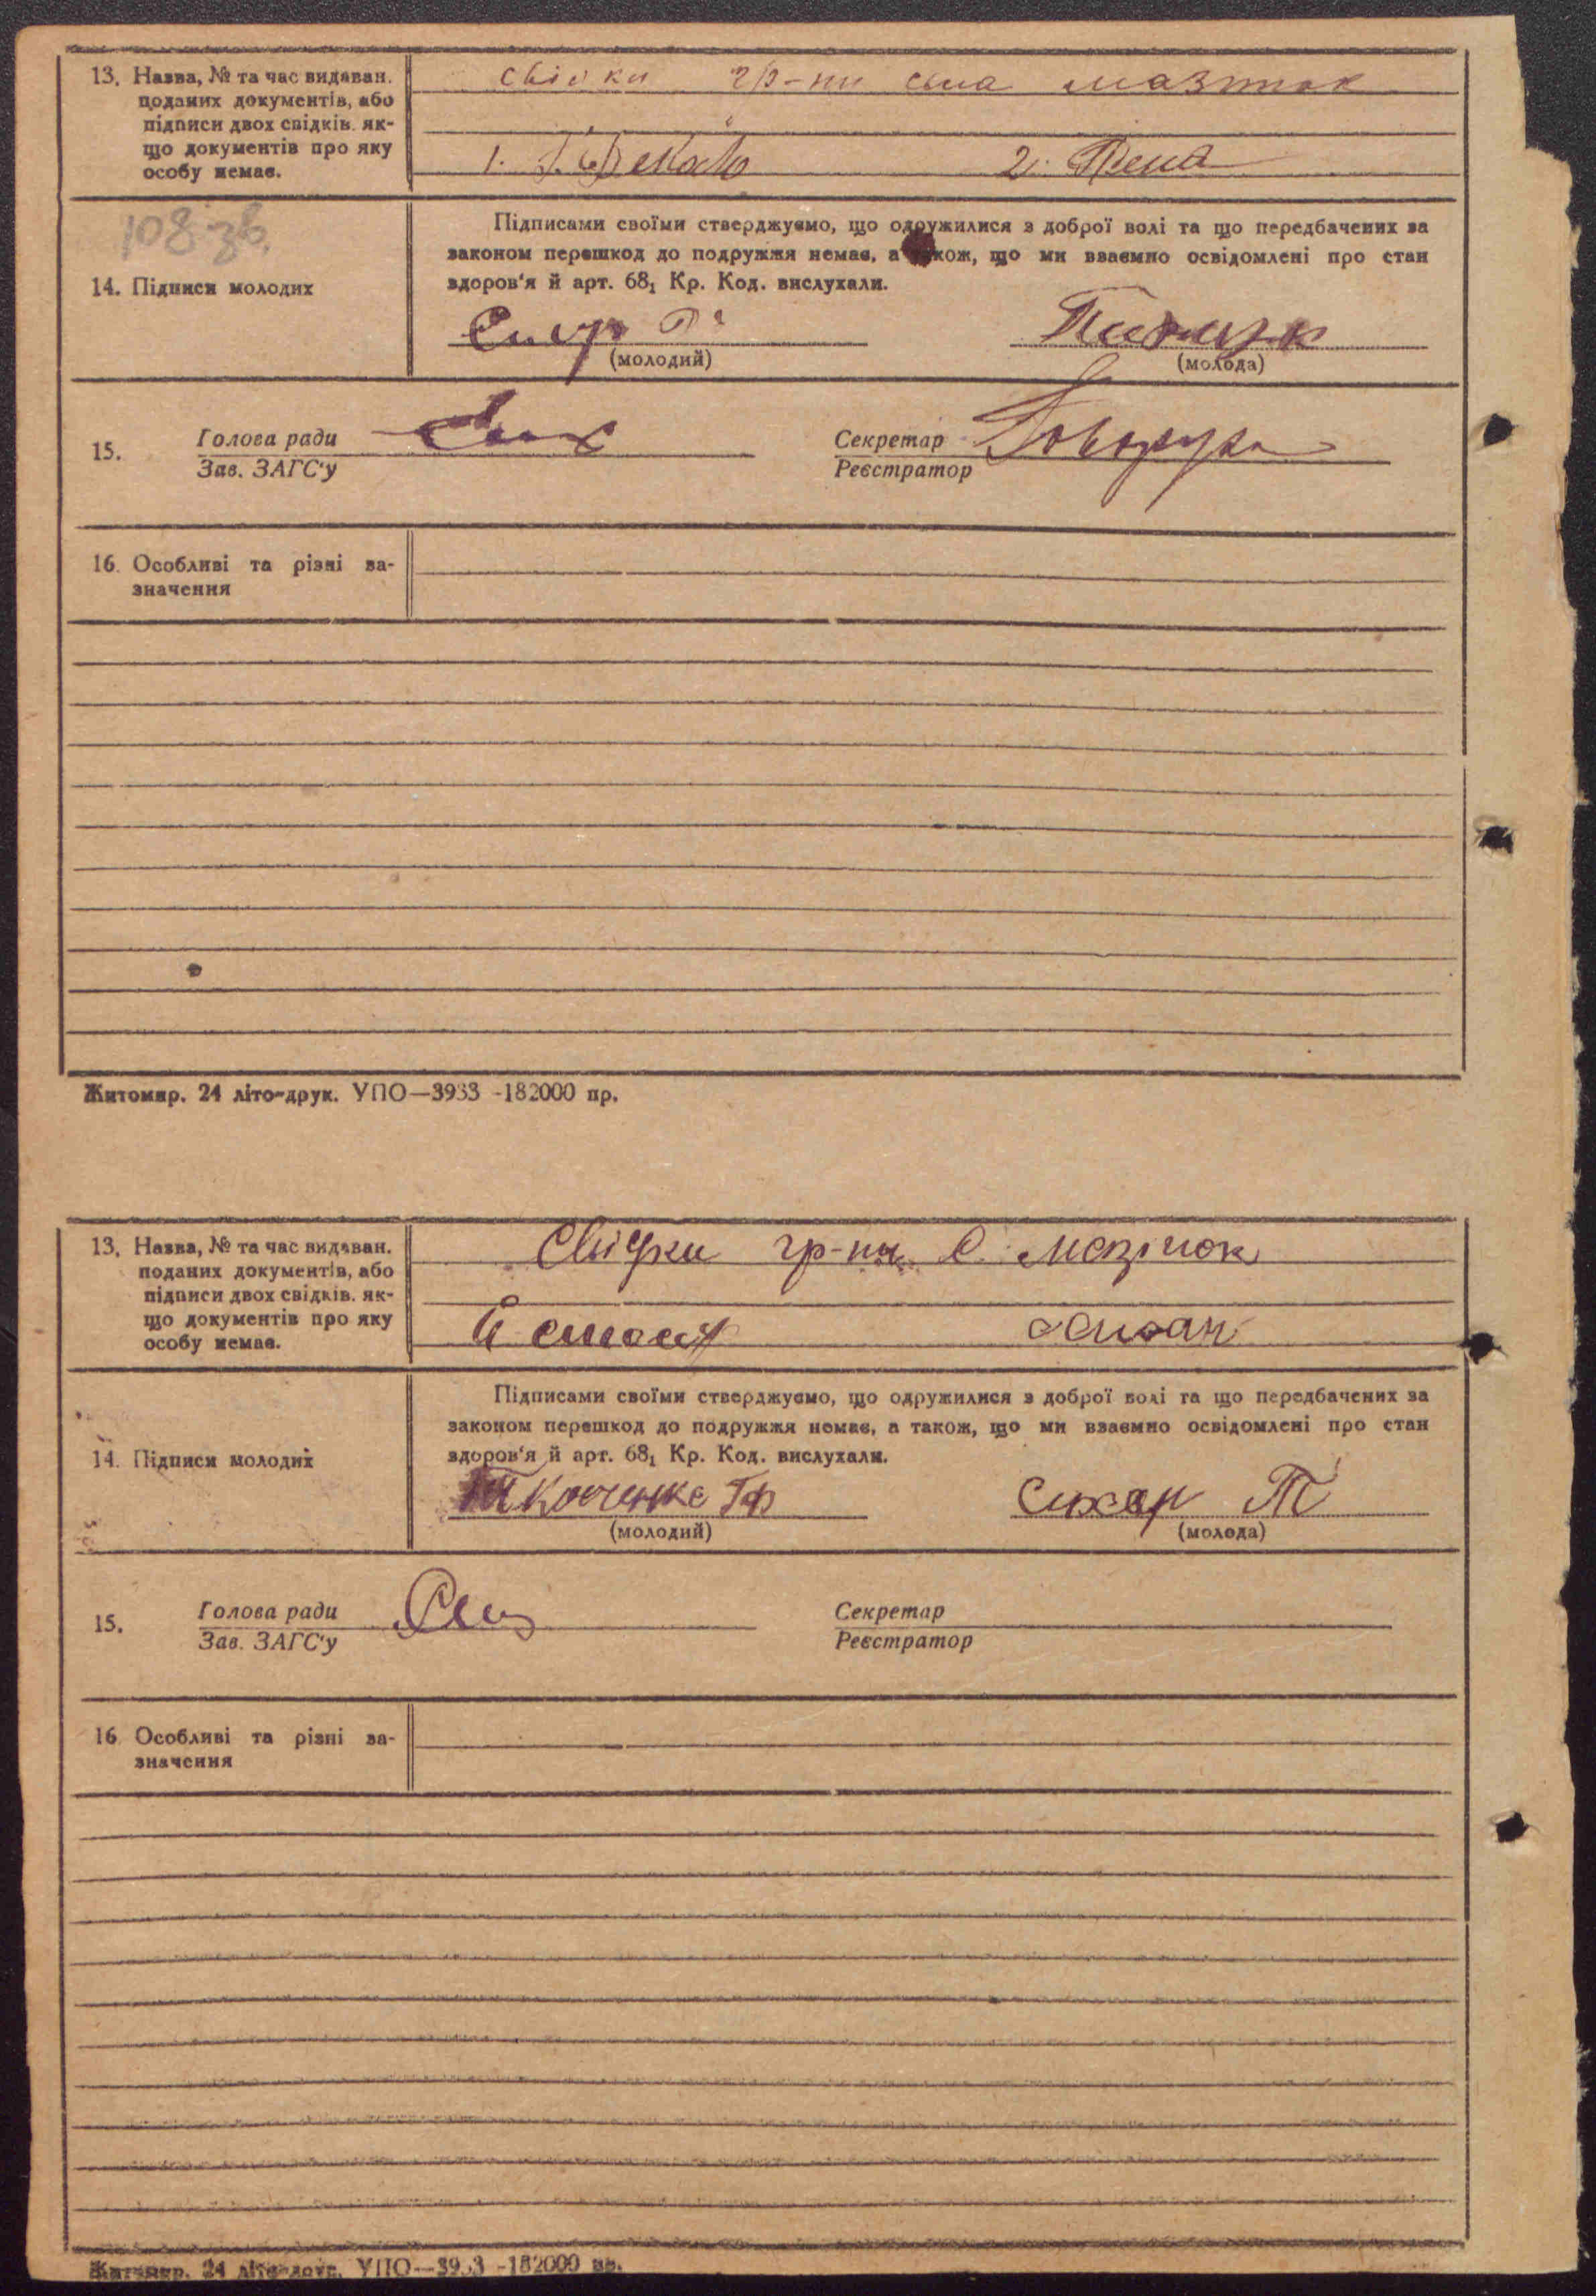 13. Назва, № та час видаван.
поданих документів, або
підписи двох свідків, як-
що документів про яку
особу немає.
свідки гр-ни села мазінок
1.
2.
108 зв.
14. Підписи молодих
Підписами своїми стверджуємо, що одружилися з доброї волі та що передбачених за
законом перешкод до подружжя немає, а також, що ми взаємно освідомлені про стан
здоров'я й арт. 68₁ Кр. Код. вислухали.
(молодий)
(молода)
15. Голова ради
Зав. ЗАГС'у
Секретар
Реєстратор
16. Особливі та різні за-
значення
Житомир. 24 літо-друк. УПО—3933 -182000 пр.
13. Назва, № та час видаван.
поданих документів, або
підписи двох свідків, як-
що документів про яку
особу немає.
Свідки гр-ни с. Мазінок
14. Підписи молодих
Підписами своїми стверджуємо, що одружилися з доброї волі та що передбачених за
законом перешкод до подружжя немає, а також, що ми взаємно освідомлені про стан
здоров'я й арт. 68₁ Кр. Код. вислухали.
Сихар Т
(молодий)
(молода)
15. Голова ради
Зав. ЗАГС'у
Секретар
Реєстратор
16 Особливі та різні за-
значення
Житомир. 24 літо-друк. УПО—3933 -182000 пр.